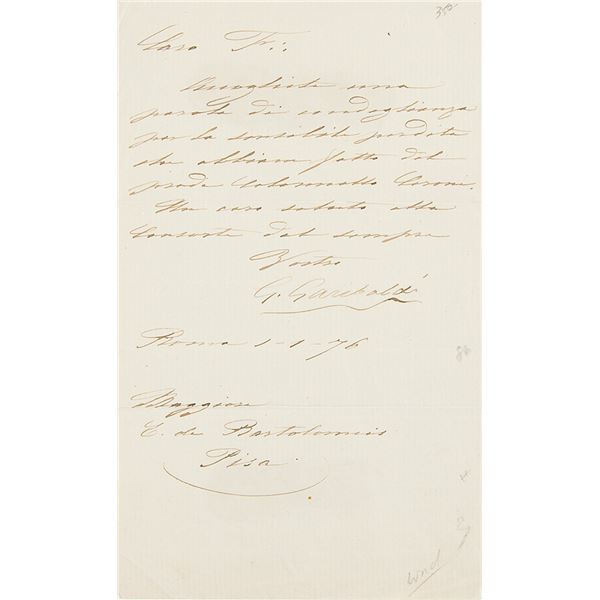 Caro Fr∴
Accogliete una
parola di condoglianza
per la sensibile perdita
che abbiam fatto del
prode Colonnello
Un caro saluto alla
Consorte dal sempre
Vostro
G. Garibaldi
Roma 1-1-76
Maggiore
E. de Bartolomeis
Pisa